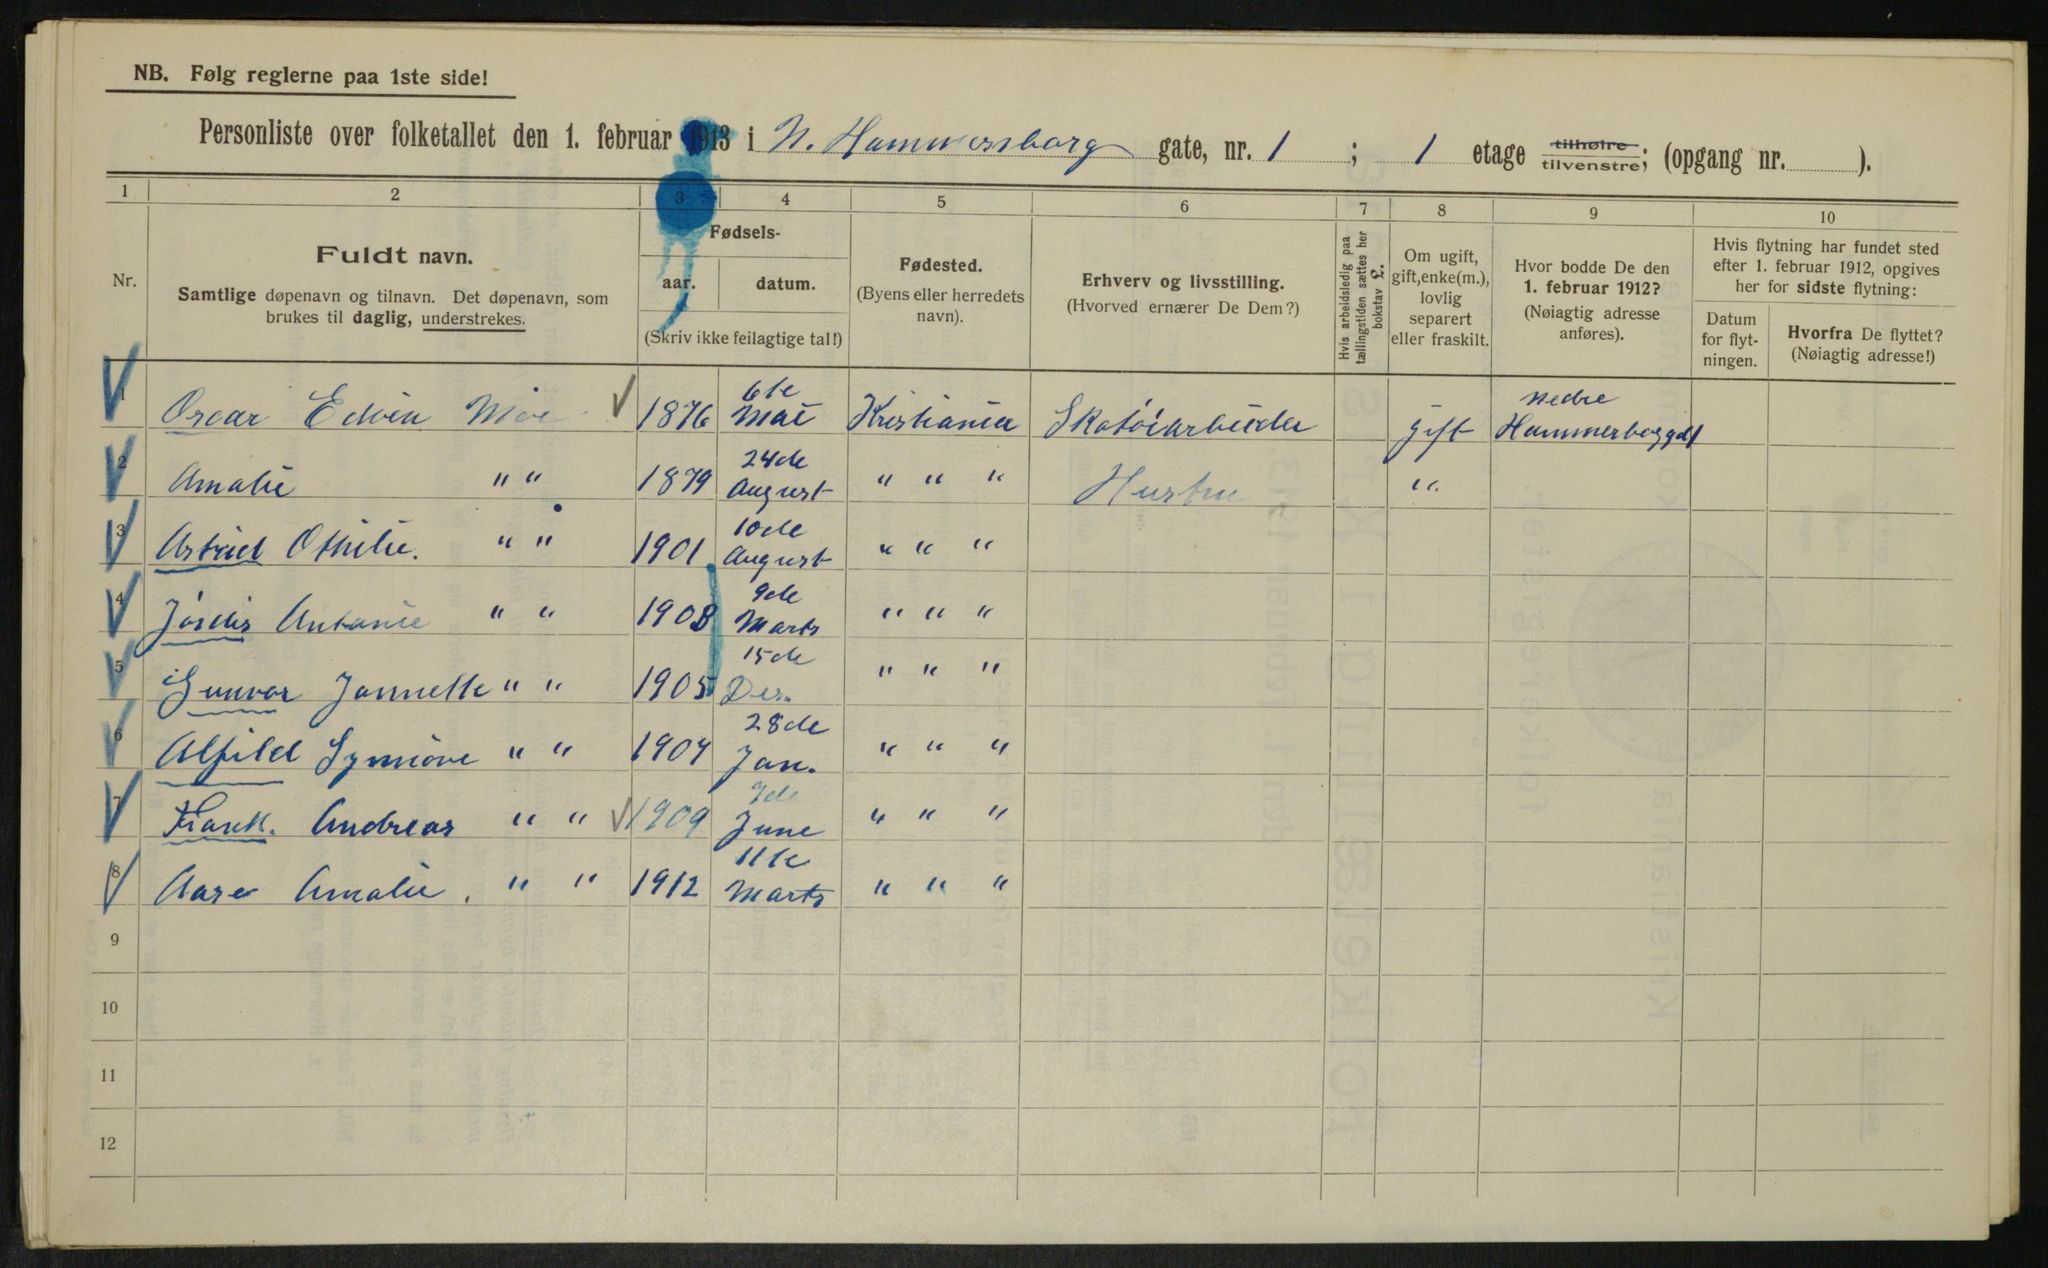 NB. Følg reglerne paa 1ste side!
Personliste over folketallet den 1. februar 1913 i N. Hammersborg gate, nr. 1 ; 1 etage tilhøire tilvenstre; (opgang nr. ).
1 2 3 4 5 6 7 8 9 10
Nr.
Fuldt navn.
Samtlige døpenavn og tilnavn. Det døpenavn, som
brukes til daglig, understrekes.
Fødsels-
aar. datum.
(Skriv ikke feilagtige tal!)
Fødested.
(Byens eller herredets
navn).
Erhverv og livsstilling.
(Hvorved ernærer De Dem?)
Hvis arbeidsledig paa
tællingstiden sættes her
bokstav L.
Om ugift,
gift, enke(m.),
lovlig
separert
eller fraskilt.
Hvor bodde De den
1. februar 1912?
(Nøiagtig adresse
anføres).
Hvis flytning har fundet sted
efter 1. februar 1912, opgives
her for sidste flytning:
Datum
for flyt-
ningen.
Hvorfra De flyttet?
(Nøiagtig adresse!)
1 Oscar Edvin Moe 1876 6te Mai Kristiania Skotøiarbeider gift nedre Hammerborggd 1
2 Amalie " " 1879 24de August " " " Hustru "
3 Astrid Othilie. " " 1901 10de August " " "
4 Jordis Antonie " " 1903 9de Marts " " "
5 Gunvor Jannette " " 1905 15de Des. " " "
6 Alfild Synnøve " " 1907 28de Jan. " " "
7 Frank. Andreas " " 1909 7de June " " "
8 Aase Amalie. " " 1912 11te Marts " " "
9
10
11
12